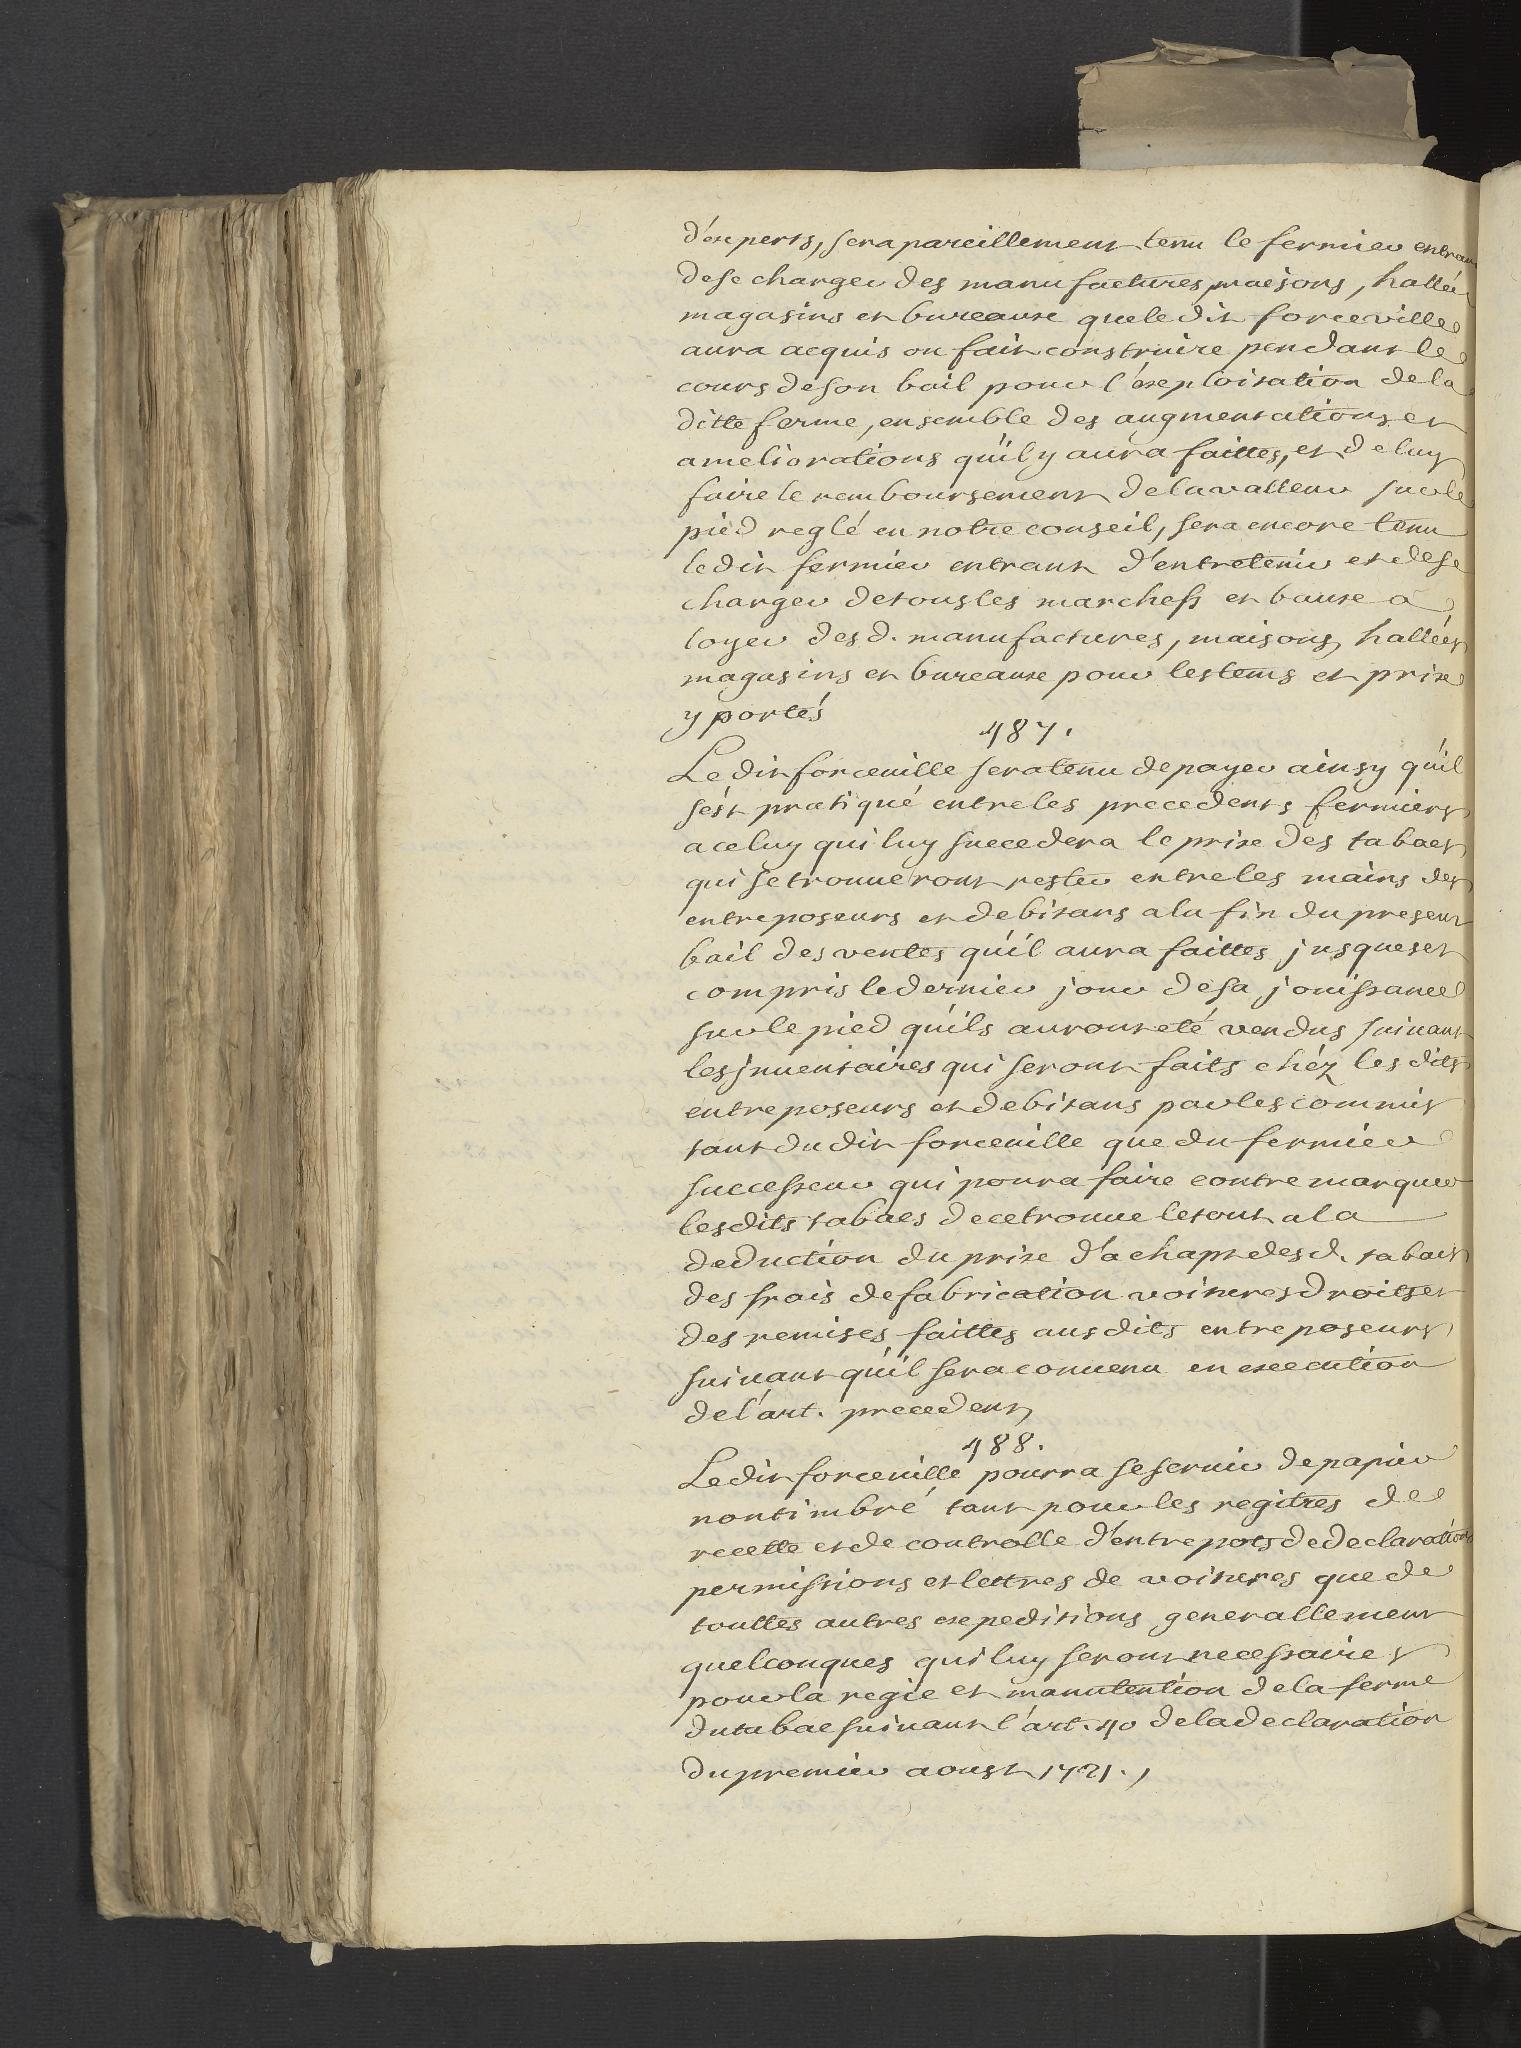 d'experts, sera pareillement tenu le fermier entrant
de se charger des manufactures, maisons, hallés
magasins et bureaux que le dit forceville
aura acquis ou fait construire pendant le
cours de son bail pour l'exploitation de la
ditte ferme, ensemble des augmentations et
ameliorations qu'il y aura faittes, et de luy
faire le remboursement de la valleur sur le
pied reglé en notre conseil, sera encore tenu
le dit fermier entrant d'entretenir et de se
charger de tous les marchess et baux a
loyer des d. manufactures, maisons, hallées
magasins et bureaux pour les tems et prix
y portés
487.
Le dit forceuille sera tenu de payer ainsy qu'il
s'est pratiqué entre les precedents fermiers
a celuy qui luy succedera le prix des tabacs
qui se trouueront rester entre les mains des
entreposeurs et debitans a la fin du present
bail des ventes qu'il aura faittes jusques et
compris le dernier jour de sa jouissance
sur le pied qu'ils auront eté vendus suiuant
les jnuentaires qui seront faits chéz les dits
entreposeurs et debitans par les commis
tant du dit forceuille que du fermier
successeur qui poura faire contremarquer
les dits tabacs de ce trouue le tout a la
deduction du prix d'achapt des d. tabacs
des frais de fabrication voitures droits et
des remises faittes ausdits entreposeurs
suiuant qu'il sera conuenu en execution
de l'art. precedent
488.
Le dit forceuille pourra se seruir de papier
non timbré tant pour les regitres de
recette et de controlle d'entrepots de declarations
permissions et lettres de voitures que de
touttes autres expeditions generallement
quelconques qui luy seront necessaires
pour la regie et manutention de la ferme
du tabac suiuant l'art. 40 de la declaration
du premier aoust 1721.